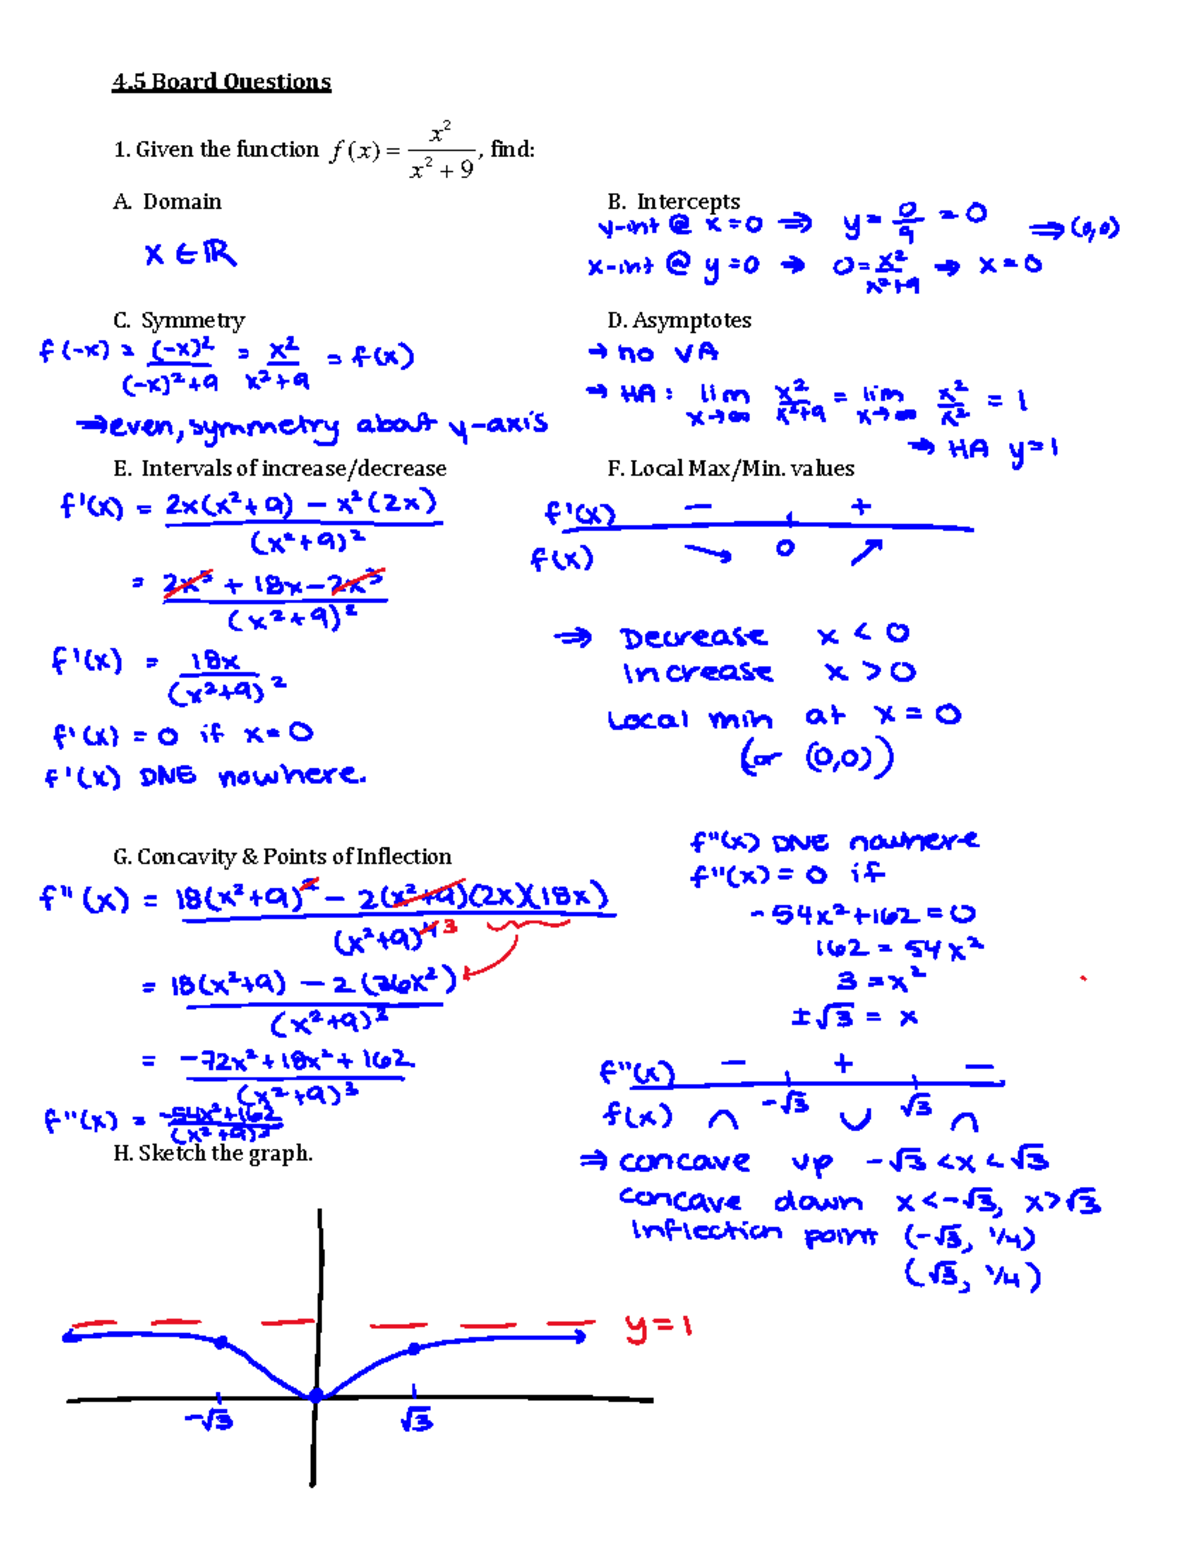 4.5 Board Questions
1. Given the function f(x) = x²/(x² + 9), find:
A. Domain
x ∈ ℝ
B. Intercepts
y-int @ x = 0 ⇒ y = 0/9 = 0 ⇒ (0,0)
x-int @ y = 0 → 0 = x²/(x²+9) → x = 0
C. Symmetry
f(-x) = (-x)²/((-x)²+9) = x²/(x²+9) = f(x)
⇒ even, symmetry about y-axis
D. Asymptotes
→ no VA
→ HA: lim x→∞ x²/(x²+9) = lim x→∞ x²/x² = 1
→ HA y=1
E. Intervals of increase/decrease
f'(x) = (2x(x²+9) − x²(2x))/(x²+9)²
= (2x³ + 18x − 2x³)/(x²+9)²
f'(x) = 18x/(x²+9)²
f'(x) = 0 if x = 0
f'(x) DNE nowhere.
F. Local Max/Min. values
f'(x) − +
f(x) ↘ 0 ↗
⇒ Decrease x < 0
Increase x > 0
Local min at x = 0
(or (0,0))
G. Concavity & Points of Inflection
f''(x) = (18(x²+9)² − 2(x²+9)(2x)(18x))/(x²+9)⁴ 3
= (18(x²+9) − 2(36x²))/(x²+9)³
= (−72x²+18x²+162)/(x²+9)³
f''(x) = (−54x²+162)/(x²+9)³
f''(x) DNE nowhere
f''(x) = 0 if
−54x²+162 = 0
162 = 54x²
3 = x²
±√3 = x
f''(x) − + −
f(x) ∩ −√3 ∪ √3 ∩
⇒ concave up −√3 < x < √3
concave down x < −√3, x > √3
Inflection point (−√3, 1/4)
(√3, 1/4)
H. Sketch the graph.
y = 1
−√3 √3